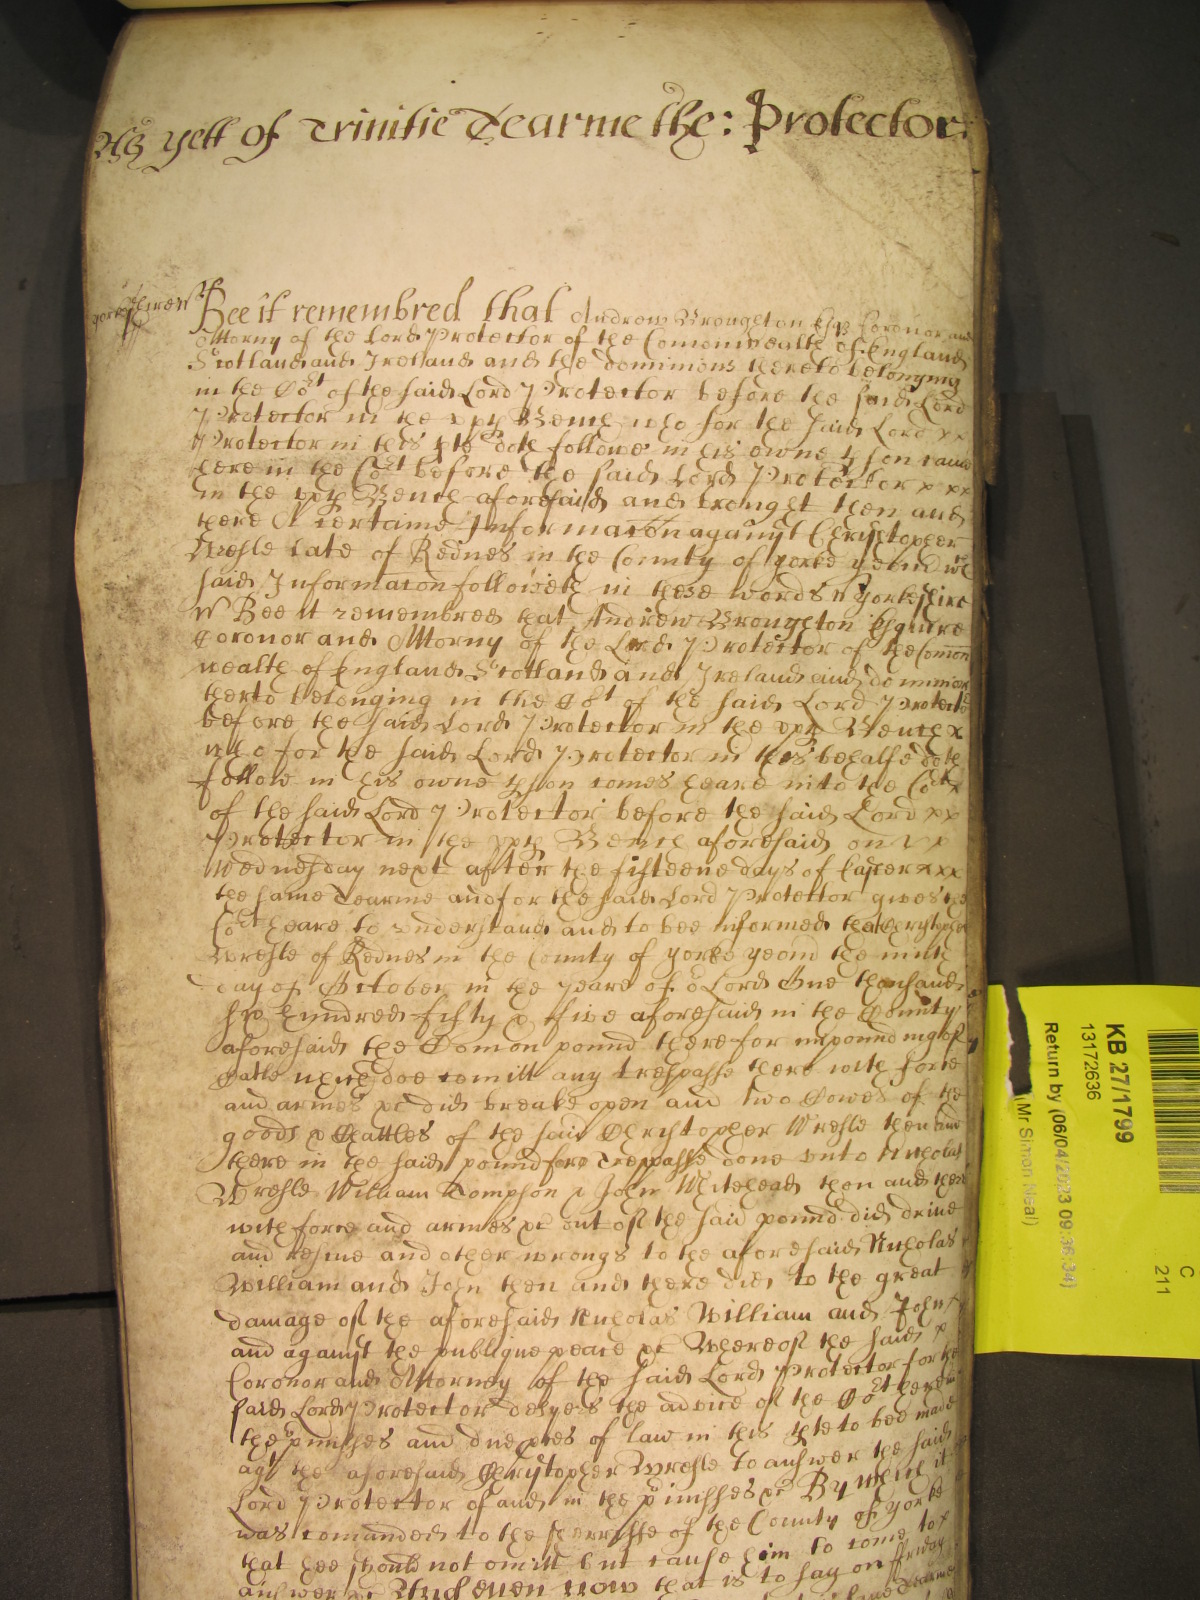 As yett of Trinitie Tearme the: Protector
Yorkeshire ss Bee it remembred that Andrew Broughton Esqr Coronor and
Attorny of the Lord Protector of the Comonwealth of England
Scotland and Ireland and the dominions thereto belonging
in the Cort of the said Lord Protector before the said Lord
Protector in the upp Bench who for the said Lord xx
Protector in this pte doth followe in his owne pson came
here in the Cort before the said Lord Protector x xx
in the upp Bench aforesaid and brought then and
there A certaine Informacon against Christopher
Wresle late of Rednes in the County of Yorke yeom wch
said Informacon followeth in these words ss Yorkeshire
ss Bee it remembred that Andrew Broughton Esquire
Coronor and Attorny of the Lord Protector of the Comon
wealth of England Scotland and Ireland and dominions
therto belonging in the Cort of the said Lord Protector
before the said Lord Protector in the upp Bench x
who for the said Lord Protector in this behalfe doth
follow in his owne pson comes heare into the Cort x
of the said Lord Protector before the said Lord xx
Protector in the upp Bench aforesaid on x x
Wednesday next after the fifteene days of Easter xxx
the same Tearme and for the said Lord Protector gives the
Cort heare to understand and to bee informed that Christopher
Wresle of Rednes in the County of Yorke yeom the ninth
day of October in the yeare of or Lord One thousand
six hundred fifty & five aforesaid in the County
aforesaid the Comon pound there for impounding of
Catle which doe comitt any trespasse there with force
and armes &c did breake open and two Cowes of the
goods & Chattles of the said Christopher Wresle then and
there in the said pound for a Trespasse done unto Nicholas
Wresle William Tompson & John Whitehead then and there
with force and armes &c out of the said pound did drive
and rescue and other wrongs to the aforesaid Nicholas
William and John then and there did to the great
damage of the aforesaid Nicholas William and John
and against the publique peace &c Whereof the said x
Coronor and Attorney of the said Lord Protector for the
said Lord Protector desyers the advice of the Cort here in
the pmisses and due pces of law in this pte to bee made
agt the aforesaid Christopher Wresle to answer the said
Lord Protector of and in the pmisses &c By which it
was comanded to the sherriffe of the County of Yorke
that hee should not omitt but cause him to come to x
answer &c And even now that is to say on ffriday
KB 27/1799
13172636
Return by (06/04/2023 09:36:34)
(Mr Simon Neal)
C
211